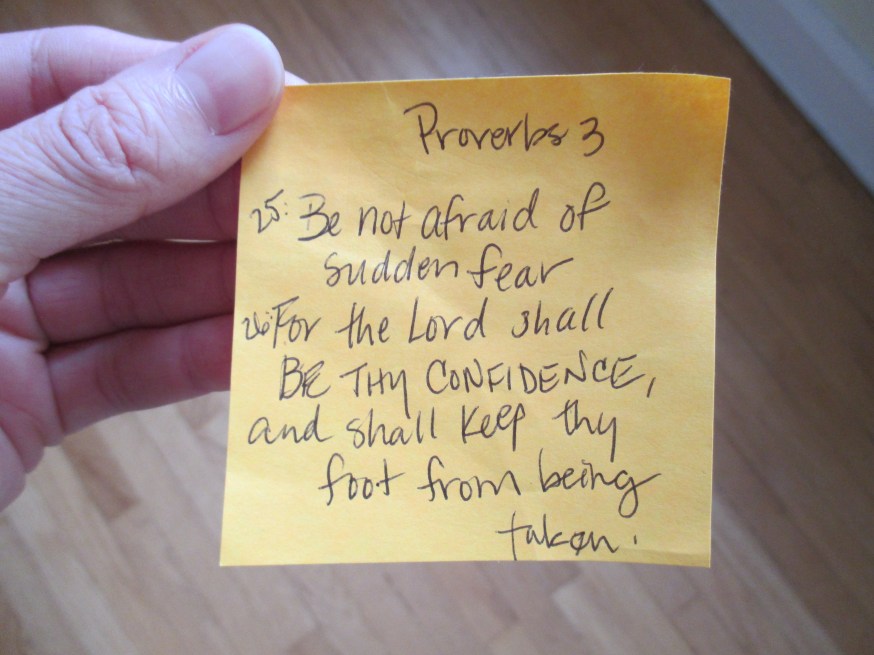 Proverbs 3
25: Be not afraid of
sudden fear
26: For the Lord shall
BE THY CONFIDENCE,
and shall keep thy
foot from being
taken.